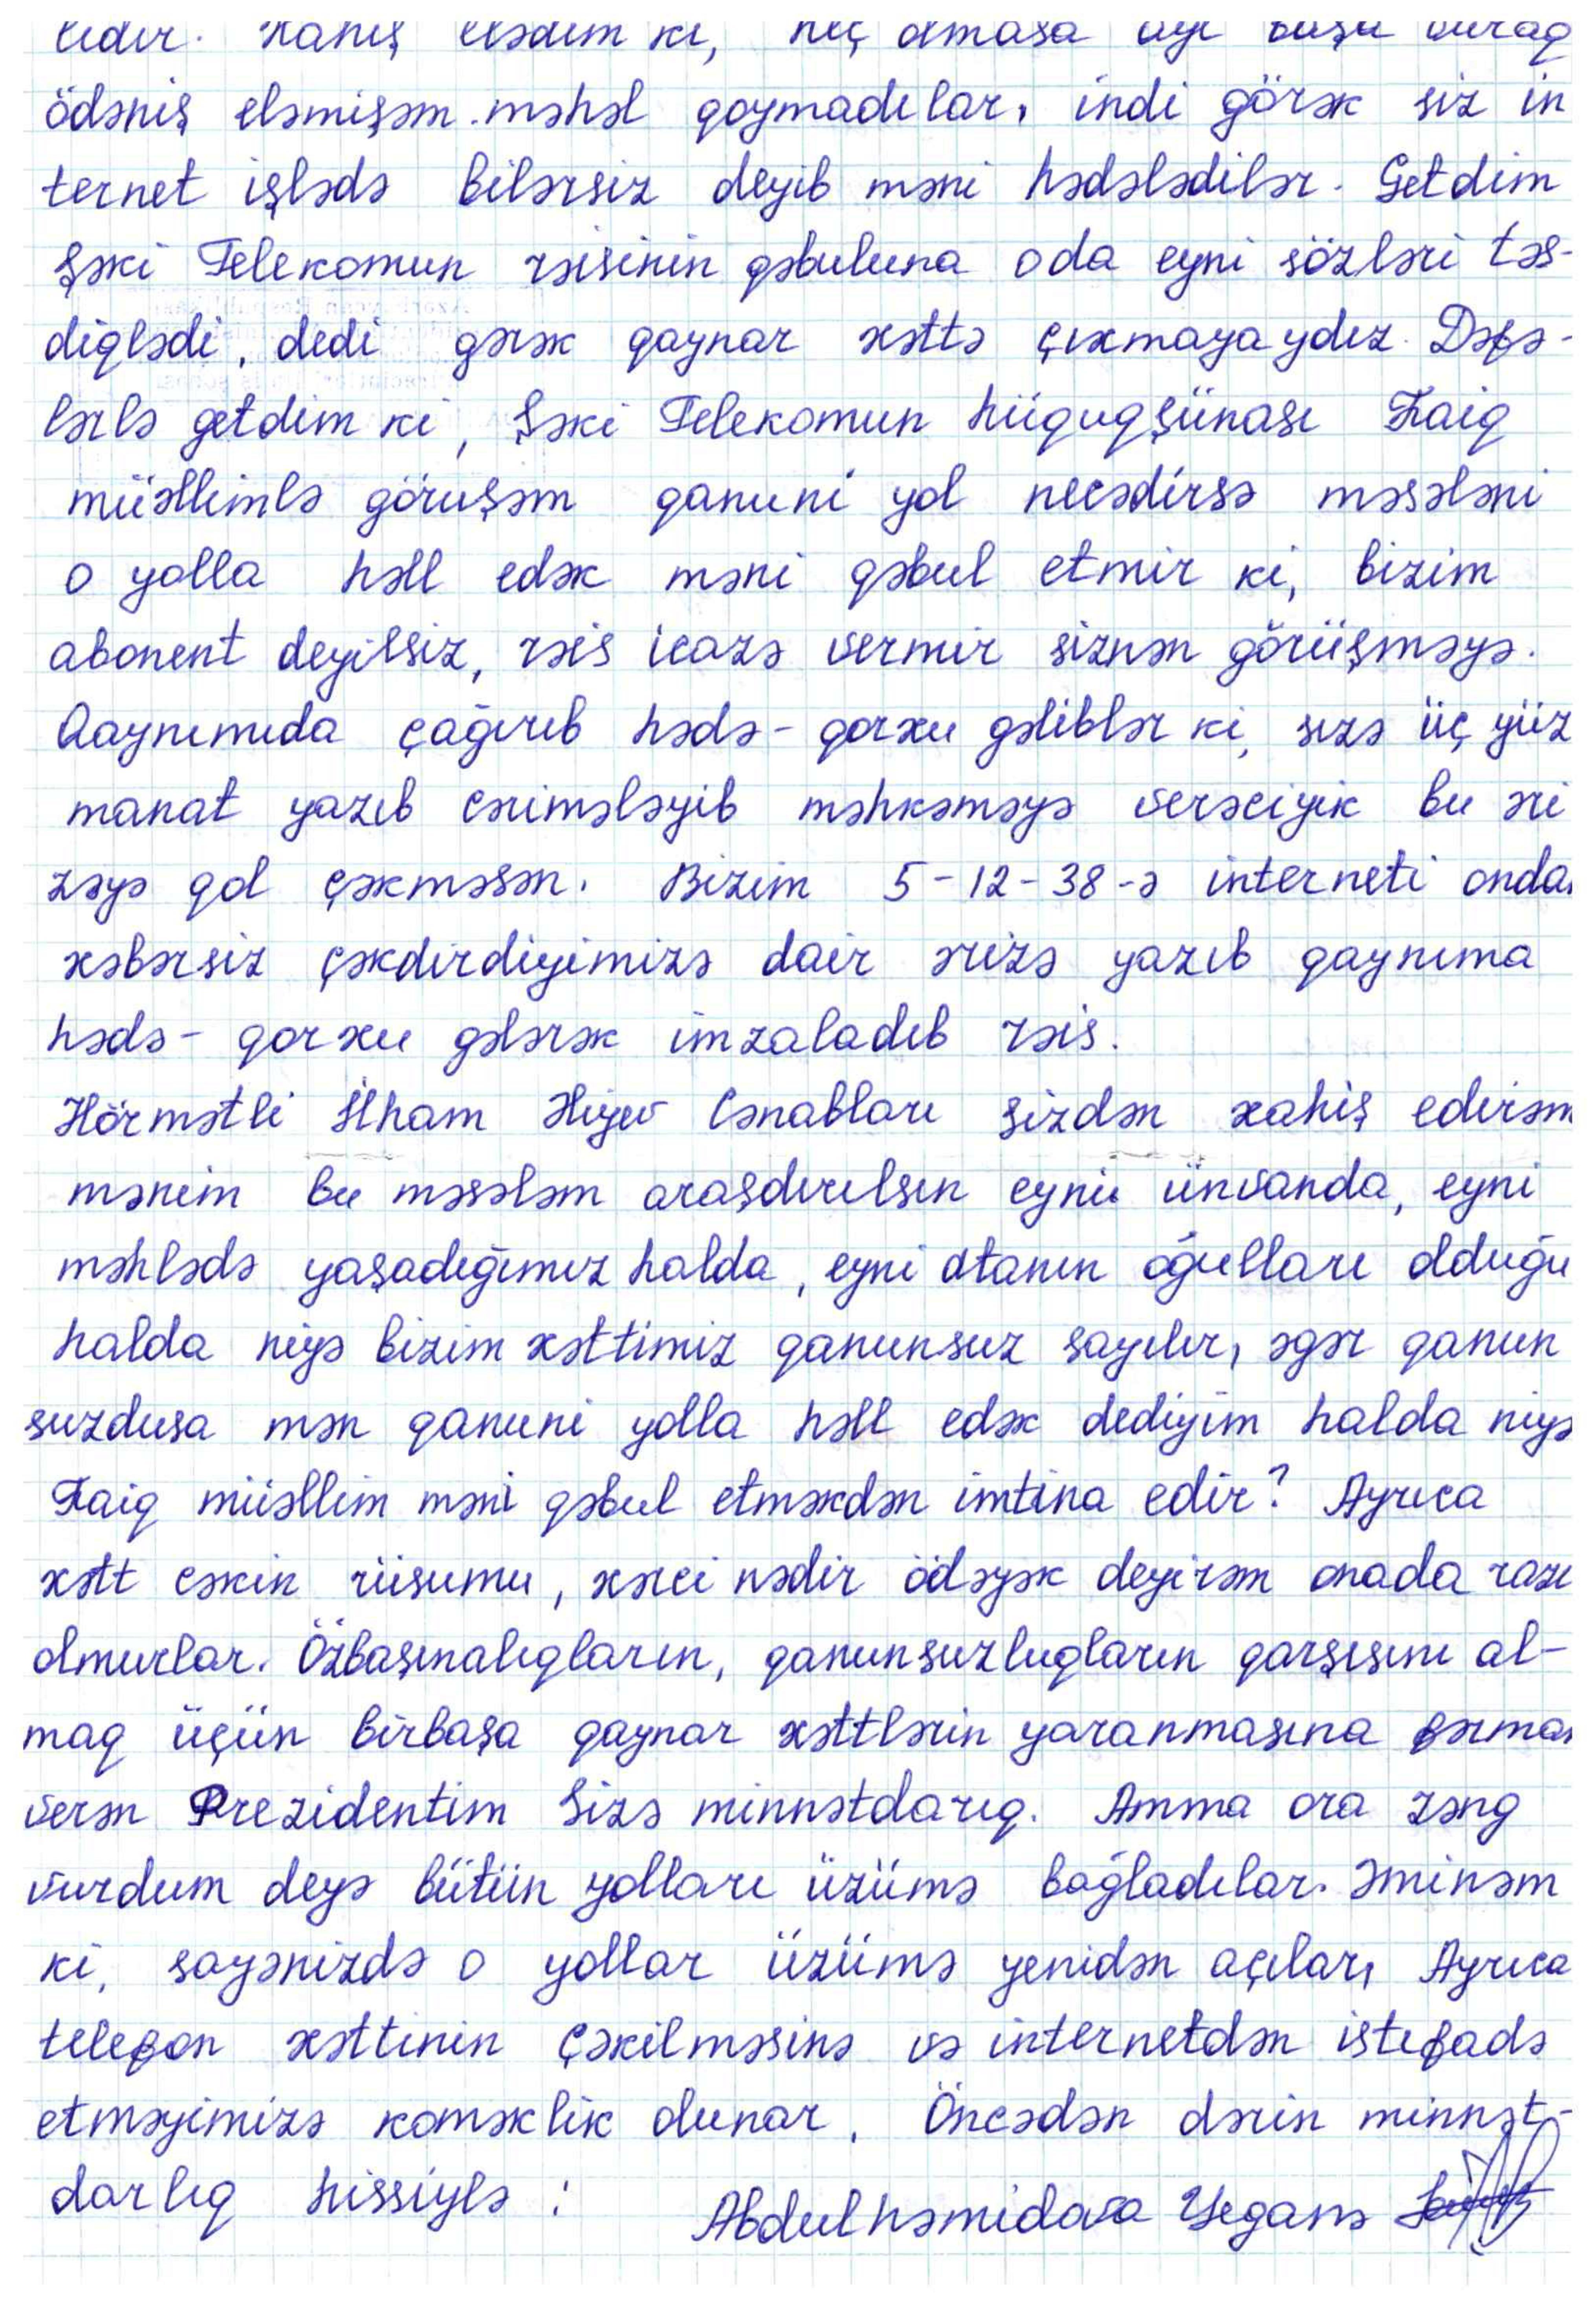 lidir. Xahiş elədim ki, heç olmasa ayı başa vuraq
ödəniş eləmişəm. məhəl qoymadılar, indi görək siz in
ternet işlədə bilərsiz deyib məni hədələdilər. Getdim
Şəki Telekomun rəisinin qəbuluna oda eyni sözləri təs-
diqlədi, dedi gərək qaynar xəttə çıxmayaydız. Dəfə-
lərlə getdim ki, Şəki Telekomun hüquqşünası Faiq
müəllimlə görüşəm qanuni yol necədirsə məsələni
o yolla həll edək məni qəbul etmir ki, bizim
abonent deyilsiz, rəis icazə vermir siznən görüşməyə.
Qaynımıda çağırıb hədə-qorxu gəliblər ki, sizə üç yüz
manat yazıb cəriməliyib məhkəməyə verəciyik bu əri
zəyə qol çəkməsən. Bizim 5-12-38-ə interneti ondan
xəbərsiz çəkdirdiyimizə dair ərizə yazıb qaynıma
hədə-qorxu gələrək imzaladıb rəis.
Hörmətli İlham Əliyev Cənabları sizdən xahiş edirəm
mənim bu məsələm araşdırılsın eyni ünvanda, eyni
məhlədə yaşadığımız halda, eyni atanın oğulları olduğu
halda niyə bizim xəttimiz qanunsuz sayılır, əgər qanun
suzdusa mən qanuni yolla həll edək dediyim halda niyə
Faiq müəllim məni qəbul etməkdən imtina edir? Ayrıca
xətt çəkin rüsumu, xərci nədir ödəyək deyirəm onada razı
olmurlar. Özbaşınalıqların, qanunsuzluqların qarşısını al-
maq üçün birbaşa qaynar xəttlərin yaranmasına fərman
verən Prezidentim Sizə minnətdarıq. Amma ora zəng
vurdum deyə bütün yolları üzümə bağladılar. Əminəm
ki, sayənizdə o yollar üzümə yenidən açılar, Ayrıca
telefon xəttinin çəkilməsinə və internetdən istefadə
etməyimizə koməklik olunar. Öncədən dərin minnət-
darlıq hissiylə:
Abdulhəmidova Yeganə